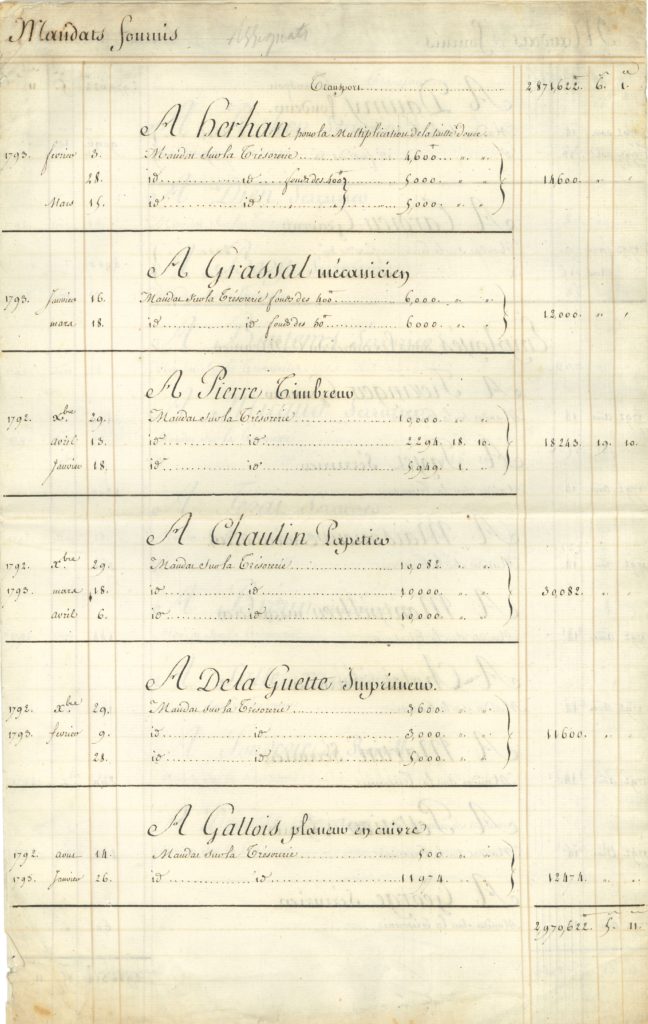 Mandats fournis
Assignats
Transport 2,871,622.tt 6.s 1.d
A Herhan pour la Multiplication de la taille douce.
1793. février 3. Mandat sur la Trésorerie 4,600.tt " " 14600. " "
28. id id fonds des 400tt 5000. " "
Mars 15. id id " " 5000. " "
A Grassal mécanicien
1793. Janvier 16. Mandat sur la Trésorerie fonds des 400tt 6,000. " " 12,000. " "
mars 18. id id fonds des 50tt 6000. " "
A Pierre Timbreur
1792. Xbre 29. Mandat sur la Trésorerie 10,000. " " 18243. 19. 10.
avril 13. id id 2294. 18. 10.
Janvier 18. id id 5949. 1. "
A Chaulin Papetier
1792. Xbre 29. Mandat sur la Trésorerie 10,082. " " 30,082. " "
1793. mars 18. id id 10,000. " "
avril 6. id id 10,000. " "
A De la Guette Imprimeur.
1792. Xbre 29. Mandat sur la Trésorerie 3600. " " 11600. " "
1793. février 9. id id 3,000. " "
28. id id 5000. " "
A Gallois planeur en cuivre
1792. aout 14. Mandat sur la Trésorerie 500. " " 12474. " "
1793. Janvier 26. id id 11974. " "
2,979,622.tt 5.s 11.d